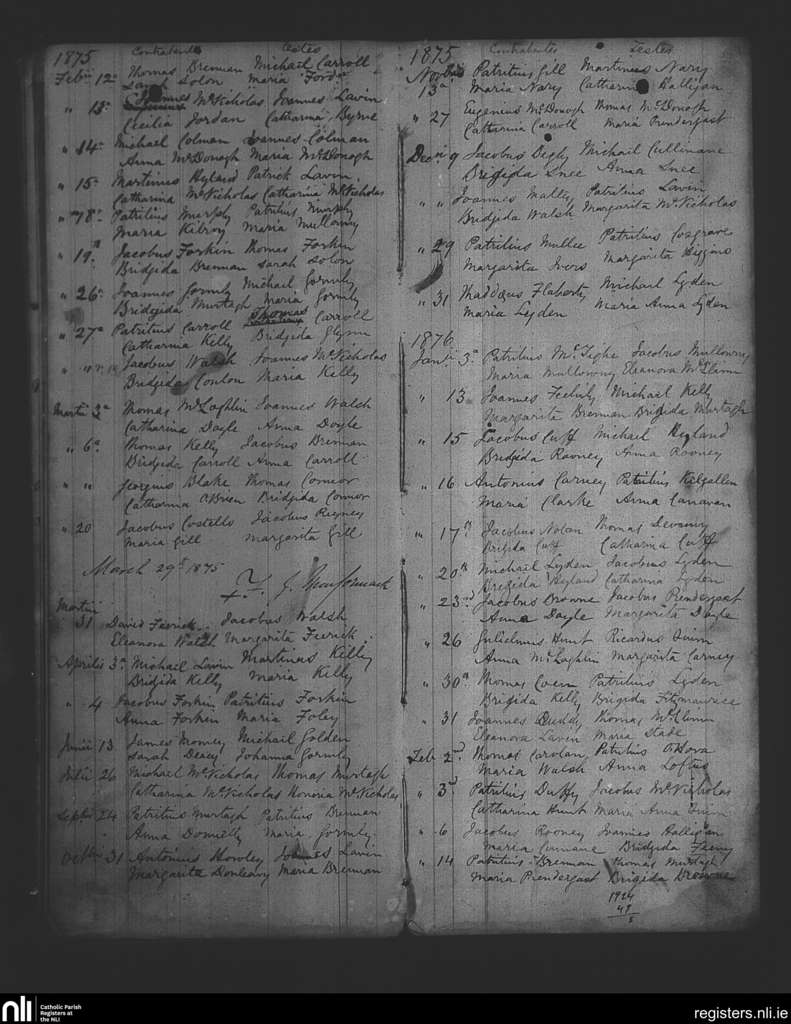 1875 Contrahentes testes
Feb 12 Thomas Brennan Michael Carroll
Solon Maria Ford
" 13 Joannes McNicholas Joannes Lavin
Cecilia Jordan Catharina Byrne
" 14 Michael Colman Joannes Colman
Anna McDonogh Maria McDonogh
" 15 Martinus Hyland Patrick Lavin
Catharina McNicholas Catharina McNicholas
" 18 Patritius Murphy Patritius Murphy
Maria Kilroy Maria Mullowny
" 19 Jacobus Forkin Thomas Forkin
Bridgida Brennan Sarah Solon
" 26 Joannes Gormly Michael Gormly
Bridgida Murtagh Maria Gormly
" 27 Patritius Carroll Thomas Carroll
Catharina Kelly Bridgida Glynn
" " Jacobus Walsh Joannes McNicholas
Bridgida Conlon Maria Kelly
Martii 3 Thomas McLoghlin Joannes Walsh
Catharina Doyle Anna Doyle
" 6 Thomas Kelly Jacobus Brennan
Bridgida Carroll Anna Carroll
" " Georgius Blake Thomas Connor
Catharina O'Brien Bridgida Connor
" 20 Jacobus Costello Jacobus
Maria Gill Margarita Gill
March 29 1875
Martii
31 David Feerick Jacobus Walsh
Eleanora Walsh Margarita Feerick
Aprilis 3 Michael Lavin Martinus Kelly
Brigida Kelly Maria Kelly
" 4 Jacobus Forkin Patritius Forkin
Anna Forken Maria Foley
Junii 13 James Michael Golden
Sarah Deacy Johanna Gormly
Julii 26 Michael McNicholas Thomas Murtagh
Catharina McNicholas Honoria McNicholas
Septbr 24 Patritius Murtagh Patritius Brennan
Anna Donnelly Maria Gormly
Octbri 31 Antonius Howley Joannes Lavin
Margarita Donleavy Maria Brennan
1875 Contrahentes Testes
Novbris Patritius Gill Martinus Nary
13 Maria Nary Catharina Halligan
" 27 Eugenius McDonogh Thomas McDonogh
Catharina Carroll Maria Prendergast
Decri 9 Jacobus Digby Michael Cullinane
Brigida Snee Anna Snee
" " Joannes Malley Patritius Lavin
Bridgida Walsh Margarita McNicholas
" 29 Patritius Mullee Patritius Cosgrave
Margarita Ivers Margarita Higgins
" 31 Thaddaeus Flaherty Michael Lyden
Maria Lyden Maria Anna Lyden
1876
Jan 3 Patritius McTighe Jacobus Mullowny
Maria Mullowny Eleanora McGlinn
" 13 Joannes Feehily Michael Kelly
Margarita Brennan Brigida Murtagh
" 15 Jacobus Cuff Michael Hyland
Bridgida Rooney Anna Rooney
" 16 Antonius Carney Patritius Kilgallen
Maria Clarke Anna Canavan
" 17 Jacobus Nolan Thomas Devanny
Brigida Cuff Catharina Cuff
" 20 Michael Lyden Jacobus Lyden
Brigida Hyland Catharina Lyden
" 23 Jacobus Browne Jacobus Prendergast
Anna Doyle Margarita Doyle
" 26 Gulielmus Hunt Ricardus Quinn
Anna McLoghlin Margarita Carney
" 30 Thomas Coen Patritius Lyden
Brigida Kelly Brigida Fitzmaurice
" 31 Joannes Duddy Thomas McGlinn
Eleanora Lavin Maria Slade
Feb 2d Thomas Carolan Patritius O'Hora
Maria Walsh Anna Loftus
" 3d Patritius Duffy Jacobus McNicholas
Catharina Hunt Maria Anna Quinn
" 6 Jacobus Rooney Joannes Halligan
Maria Cunnane Bridgida Feeny
" 14 Patritius Brennan Thomas Murtagh
Maria Prendergast Brigida Browne
1924
49
nli Catholic Parish
Registers at
the NLI
registers.nli.ie